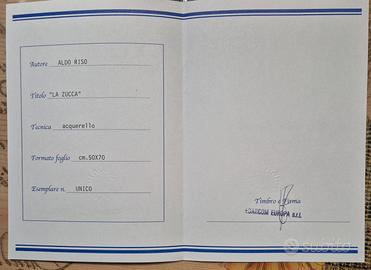 Autore ALDO RISO
Titolo "LA ZUCCA"
Tecnica acquerello
Formato foglio cm.50X70
Esemplare n. UNICO
Timbro e Firma
EUROPA s.r.l.
subito